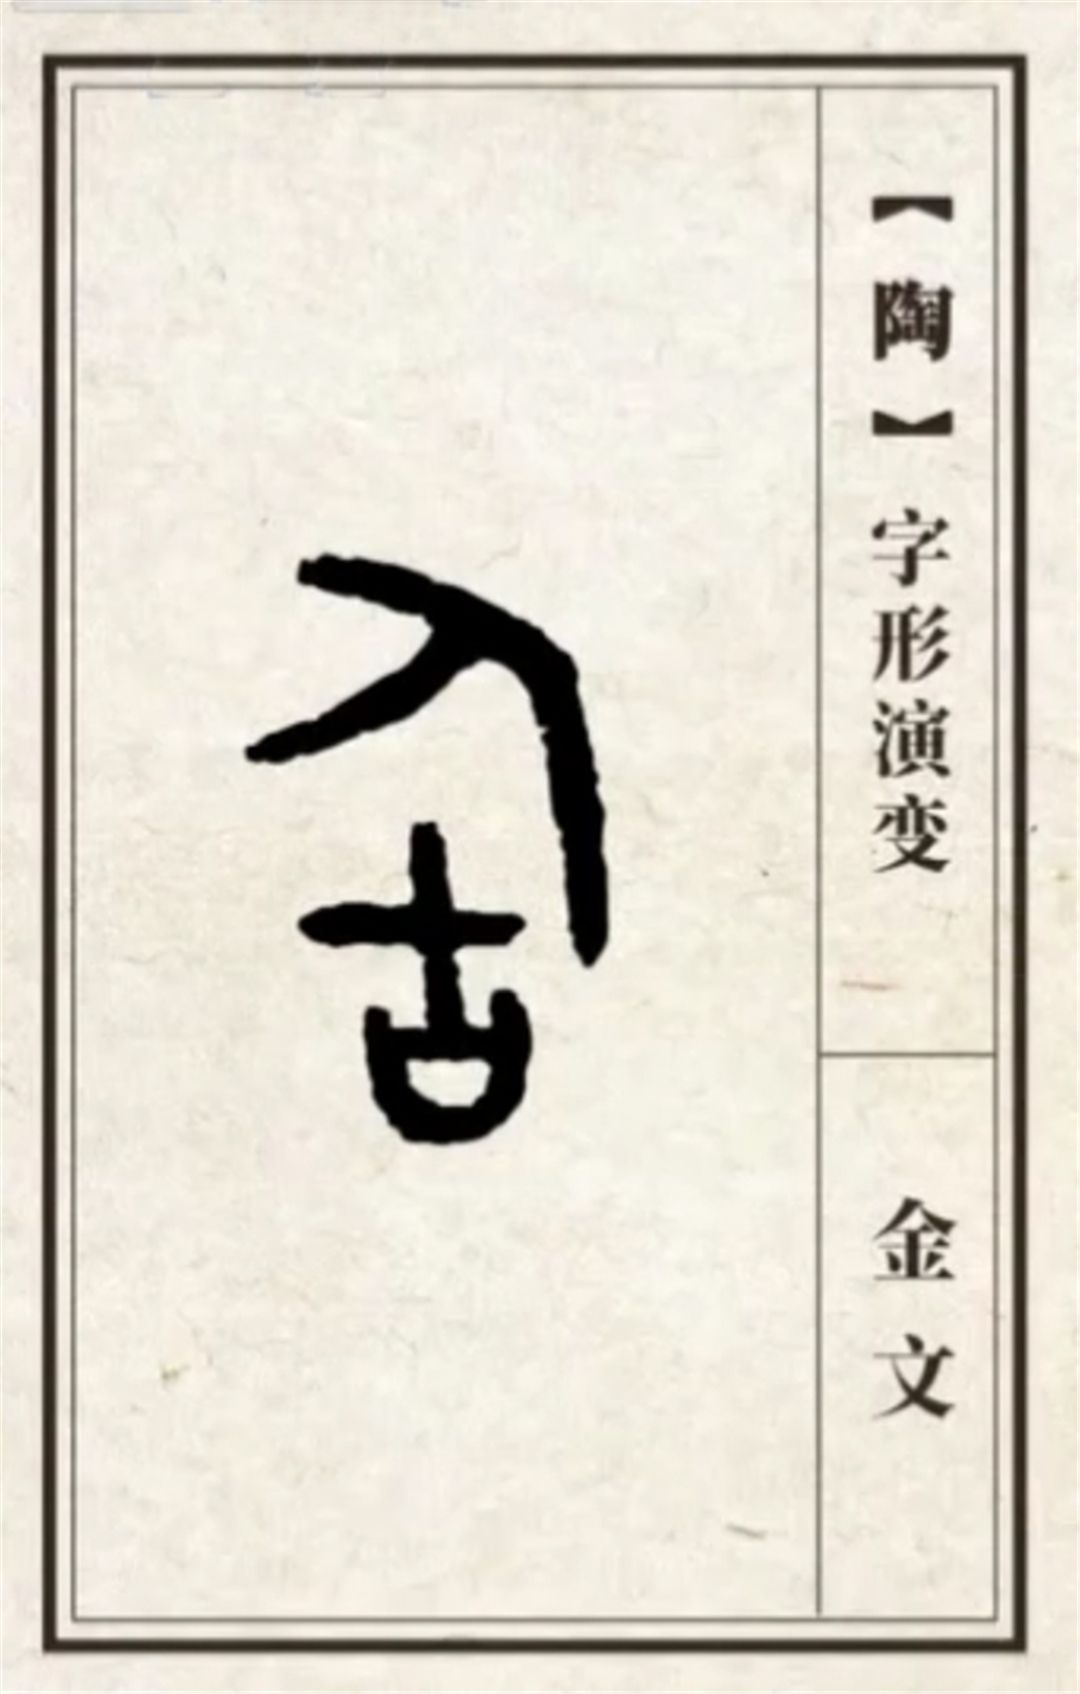 【陶】字形演变
金文